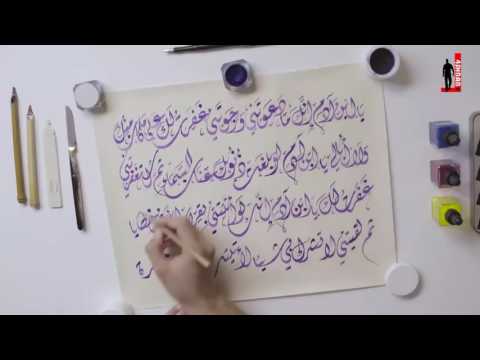 يا ابن آدم إنك ما دعوتني ورجوتني غفرت لك على ما كان منك
ولا أبالي يا ابن آدم لو بلغت ذنوبك عنان السماء ثم استغفرتني
غفرت لك يا ابن آدم إنك لو أتيتني بقراب خطايا
ثم لقيتني لا تشرك بي شيئا لأتيتك